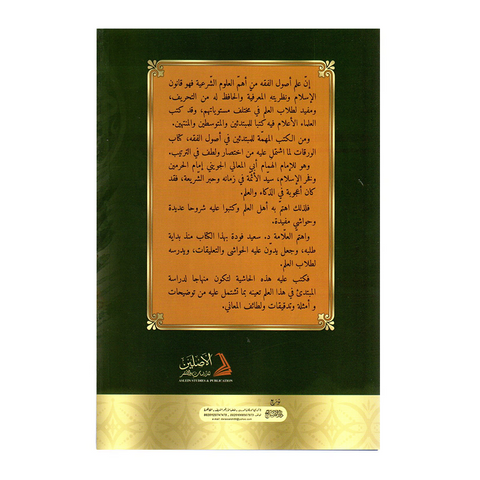 إنّ علم أصول الفقه من أهمّ العلوم الشّرعية فهو قانون
الإسلام ونظريته المعرفيّة والحافظ له من التحريف،
ومفيد لطلاب العلم في مختلف مستوياتهم، وقد كتب
العلماء الأعلام فيه كتبا للمبتدئين والمتوسطين والمنتهين.
ومن الكتب المهمّة للمبتدئين في أصول الفقه، كتاب
الورقات لما اشتمل عليه من اختصار ولطف في الترتيب.
وهو للإمام الهمام أبي المعالي الجويني إمام الحرمين
وفخر الإسلام، سيّد الأئمّة في زمانه وحبر الشريعة، فقد
كان أعجوبة في الذكاء والعلم.
فلذلك اهتمّ به أهل العلم وكتبوا عليه شروحا عديدة
وحواشي مفيدة.
واهتم العلّامة د. سعيد فودة بهذا الكتاب منذ بداية
طلبه، وجعل يدوّن عليه الحواشي والتعليقات، ويدرسه
لطلاب العلم.
فكتب عليه هذه الحاشية لتكون منهاجا لدراسة
المبتدئ في هذا العلم تعينه بما تشتمل عليه من توضيحات
و أمثلة وتدقيقات ولطائف المعاني.
الأصلين
للدراسات والنشر
ASLEIN STUDIES & PUBLICATION
توزيع